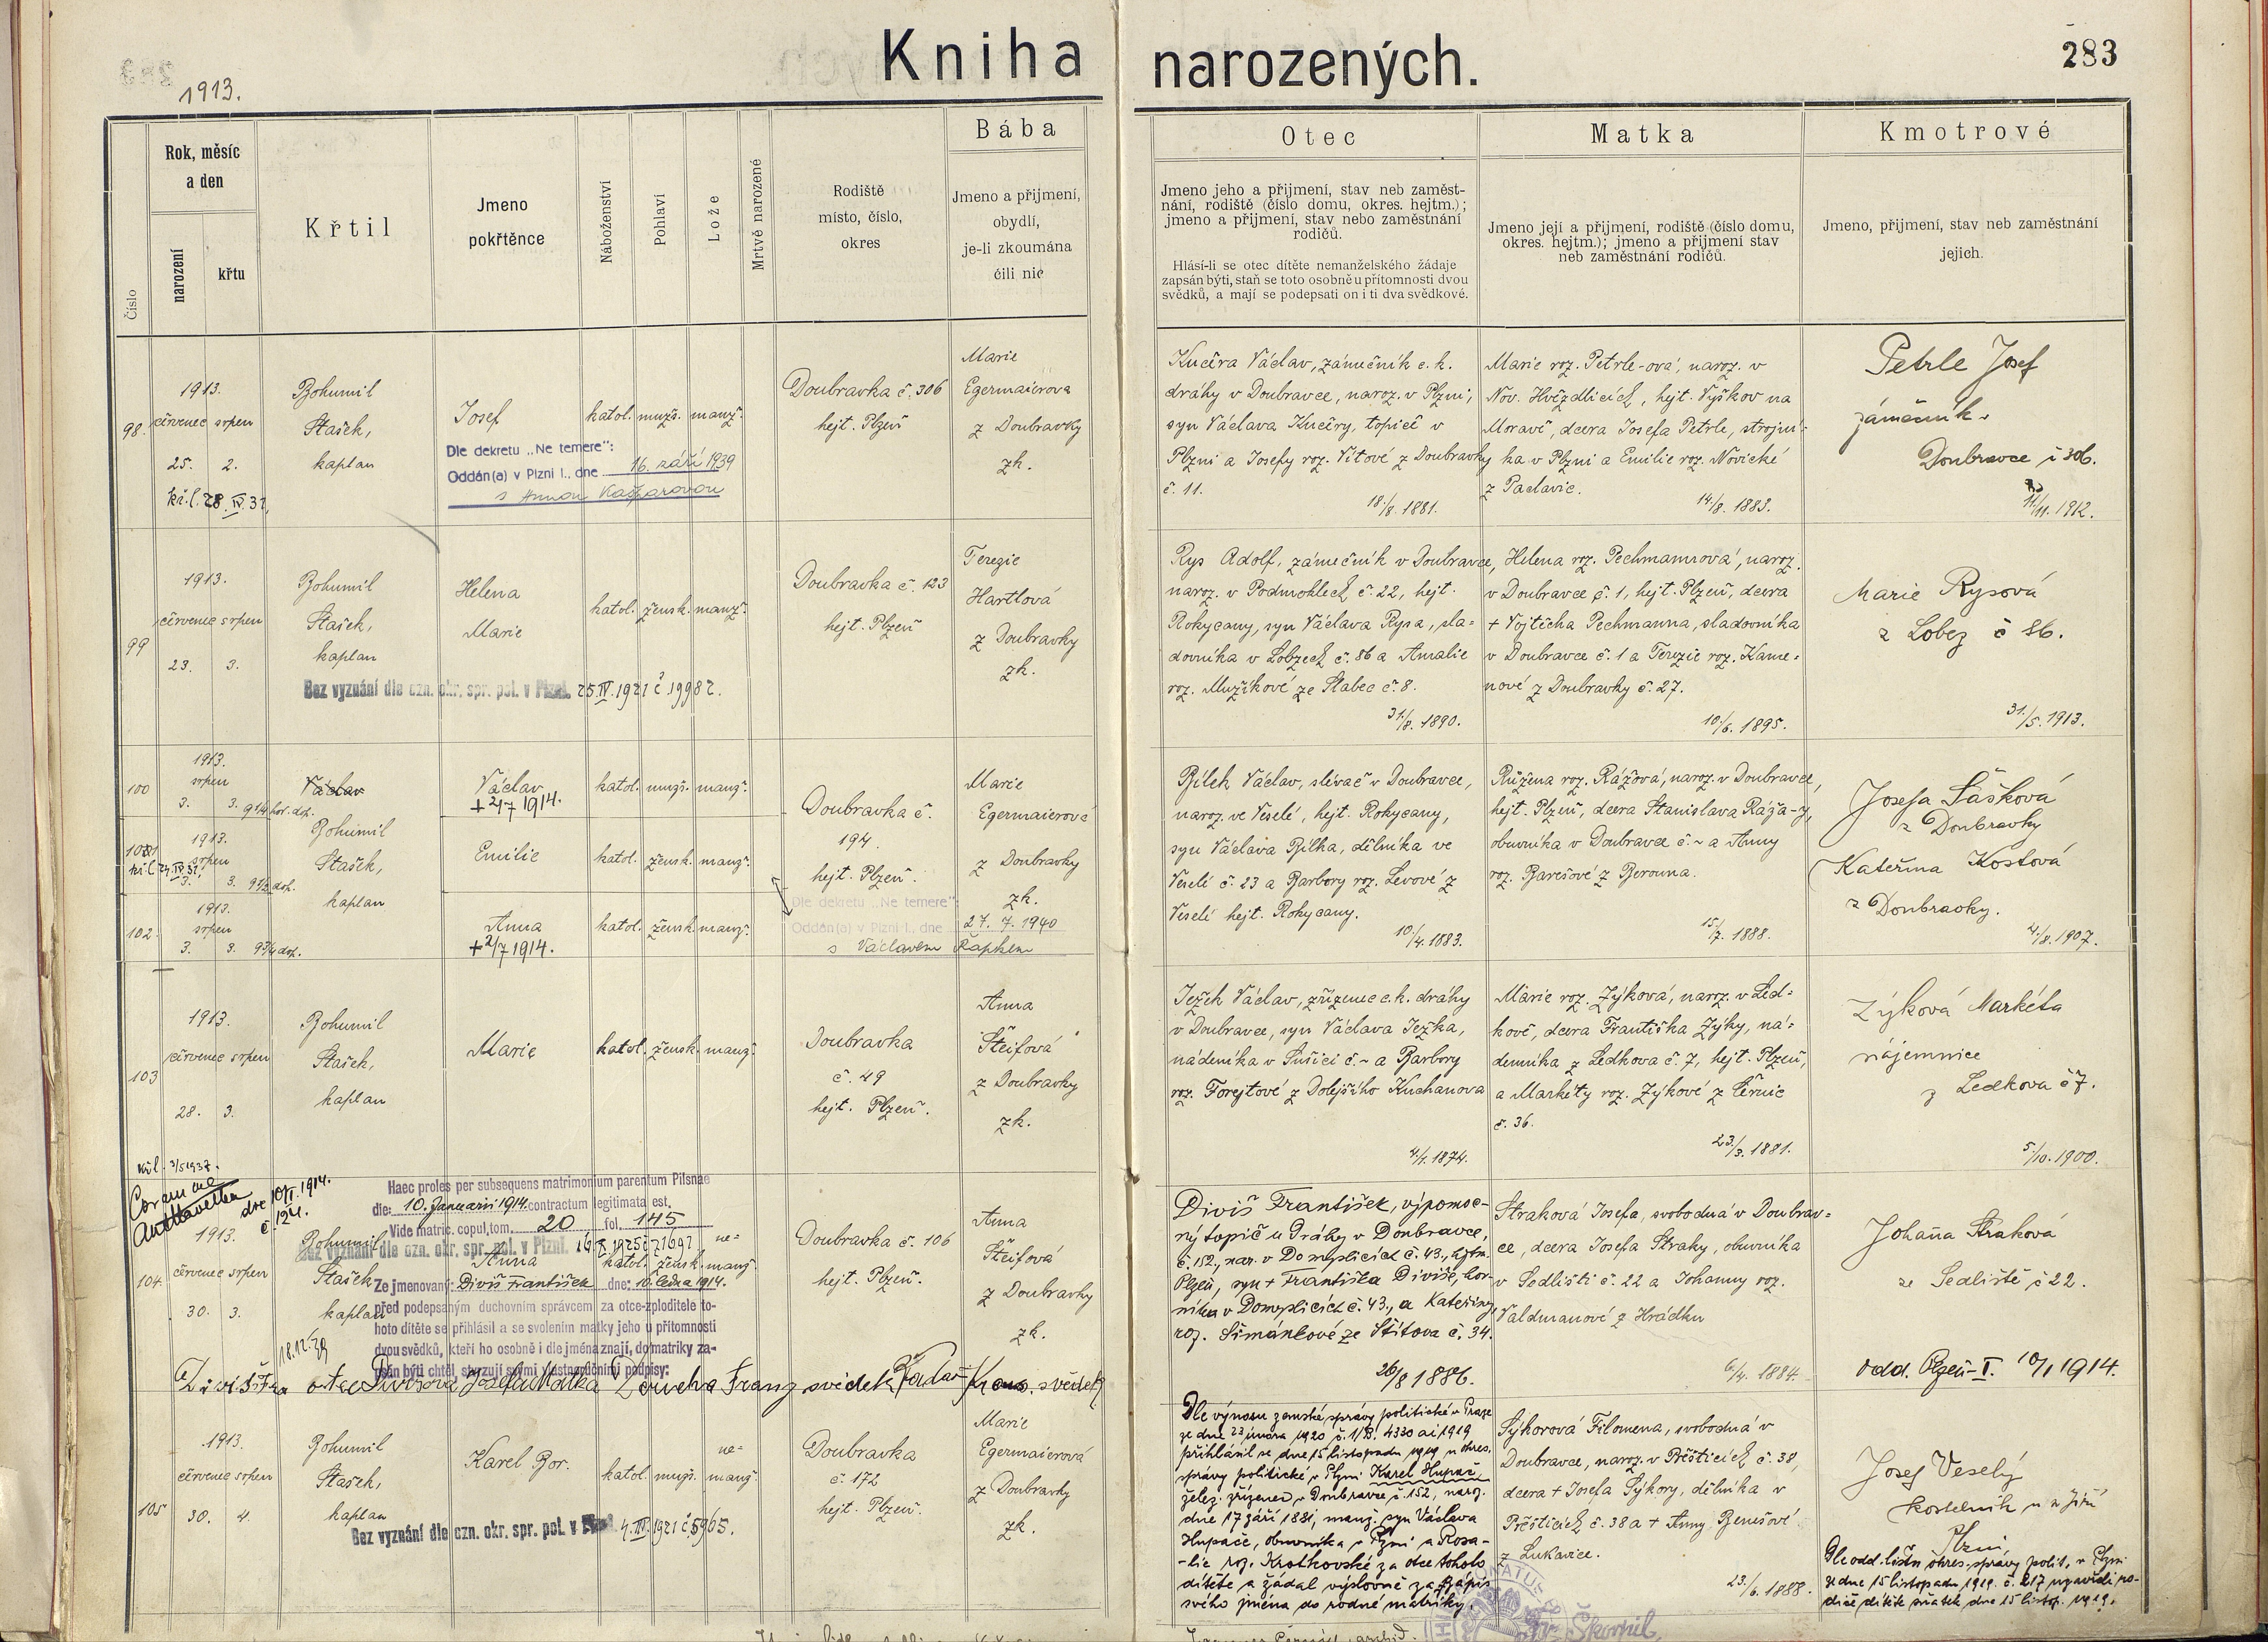 Kniha narozených.
283
1913.
Číslo
Rok, měsíc
a den
narození
křtu
Křtil
Jmeno
pokřtěnce
Náboženství
Pohlaví
Lože
Mrtvě narozené
Rodiště
místo, číslo,
okres
Bába
Jmeno a přijmení,
obydlí,
je-li zkoumána
čili nic
Otec
Jmeno jeho a přijmení, stav neb zaměst-
nání, rodiště (číslo domu, okres. hejtm.);
jmeno a přijmení, stav nebo zaměstnání
rodičů.
Hlásí-li se otec dítěte nemanželského žádaje
zapsán býti, staň se toto osobně u přítomnosti dvou
svědků, a mají se podepsati on i ti dva svědkové.
Matka
Jmeno její a přijmení, rodiště (číslo domu,
okres. hejtm.); jmeno a přijmení stav
neb zaměstnání rodičů.
Kmotrové
Jmeno, přijmení, stav neb zaměstnání
jejich.
98.
1913.
červenec srpen
25. 2.
kř. l. 28. IV. 37.
Bohumil
Stašek,
kaplan
Josef
katol. muž. manž.
Dle dekretu „Ne temere":
Oddán(a) v Plzni I., dne 16. září 1939
s Annou Kašparovou
Doubravka č. 306
hejt. Plzeň
Marie
Egermaierova
z Doubravky
zk.
Kučera Václav, zámečník c. k.
dráhy v Doubravce, naroz. v Plzni,
syn Václava Kučery, topiče v
Plzni a Josefy roz. Vítové z Doubravky
č. 11.
18./8. 1881.
Marie roz. Petrle-ová, naroz. v
Nov. Hvězdlicích, hejt. Vyškov na
Moravě, dcera Josefa Petrle, strojní-
ka v Plzni a Emilie roz. Novické
z Paclavic.
14./8. 1883.
Petrle Josef
zámečník v
Doubravce č 306.
11./11. 1912.
99
1913.
červenec srpen
23. 3.
Bohumil
Stašek,
kaplan
Helena
Marie
katol. žensk. manž.
Bez vyznání dle ozn. okr. spr. pol. v Plzni. 25. IV. 1921 č. 19982.
Doubravka č. 123
hejt. Plzeň
Terezie
Hartlová
z Doubravky
zk.
Rys Adolf, zámečník v Doubravce,
naroz. v Podmohlech č. 22, hejt.
Rokycany, syn Václava Rysa, sla-
dovníka v Lobzech č. 86 a Amalie
roz. Mužíkové ze Slabec č. 8.
31./8. 1890.
Helena roz. Pechmannová, naroz.
v Doubravce č. 1, hejt. Plzeň, dcera
+ Vojtěcha Pechmanna, sladovníka
v Doubravce č. 1 a Terezie roz. Kame-
nové z Doubravky č. 27.
10./6. 1895.
Marie Rysová
z Lobez č 86.
31./5. 1913.
100
1913.
srpen
3. 3. 9 1/4 hod. dop.
Václav
Václav
+ 2/7 1914.
katol. muž. manž.
101
kř. l. 24. IV. 37.
1913.
srpen
3. 3. 9 1/2 dop.
Bohumil
Stašek,
kaplan
Emilie
katol. žensk. manž.
102.
1913.
srpen
3. 3. 9 3/4 dop.
Anna
+ 2/7 1914.
katol. žensk. manž.
Doubravka č.
194.
hejt. Plzeň.
Dle dekretu „Ne temere":
Oddán(a) v Plzni I., dne 27. 7. 1940
s Václavem Řapkem
Marie
Egermaierová
z Doubravky
zk.
Bílek Václav, slévač v Doubravce,
naroz. ve Veselé, hejt. Rokycany,
syn Václava Bílka, dělníka ve
Veselé č. 23 a Barbory roz. Levové z
Veselí hejt. Rokycany.
10./4. 1883.
Růžena roz. Rážová, naroz. v Doubravce,
hejt. Plzeň, dcera Stanislava Ráža-y,
obuvníka v Doubravce č. ~ a Anny
roz. Barešové z Berouna.
15./7. 1888.
Josefa Sášková
z Doubravky
Kateřina Kostová
z Doubravky.
4./8. 1907.
103
1913.
červenec srpen
28. 3.
Bohumil
Stašek,
kaplan
Marie
katol. žensk. manž.
Doubravka
č. 49
hejt. Plzeň.
Anna
Šteifová
z Doubravky
zk.
Ježek Václav, zřízenec c. k. dráhy
v Doubravce, syn Václava Ježka,
nádeníka v Sušici č. ~ a Barbory
roz. Forejtové z Dolejšího Kuchanova
4./1. 1874.
Marie roz. Zýková, naroz. v Led-
kově, dcera Františka Zýky, ná-
denníka z Ledkova č. 7, hejt. Plzeň,
a Markéty roz. Zýkové z Černic
č. 36.
23./3. 1881.
Zýková Markéta
nájemnice
z Ledkova č 7.
5./10. 1900.
kř. l. 3/5 1937.
Coram me
dne 10/I. 1914.
č. 124.
Haec proles per subsequens matrimonium parentum Pilsnae
die: 10. Januarii 1914. contractum legitimata est.
Vide matric. copul. tom. 20 fol. 145
Bez vyznání dle ozn. okr. spr. pol. v Plzni.
104.
1913.
červenec srpen
30. 3.
Bohumil
Stašek
kaplan
Anna
katol. žensk. ne-
manž.
Ze jmenovaný: Diviš František dne: 10. ledna 1914.
před podepsaným duchovním správcem za otce-zploditele to-
hoto dítěte se přihlásil a se svolením matky jeho u přítomnosti
dvou svědků, kteří ho osobně i dle jména znají, do matriky za-
psán býti chtěl, stvrzují svými vlastnoručními podpisy:
18. 12. 39
otec Divišová Josefa Matka Franz svědek Kraus. svědek
Doubravka č. 106
hejt. Plzeň.
Anna
Šteifová
z Doubravky
zk.
Diviš František, výpomoc-
ný topič u Dráhy v Doubravce,
č. 152, nar. v Domyslicích č. 43., hejtm.
Plzeň, syn + Františka Diviše, hor-
níka v Domyslicích č. 43., a Kateřiny,
roz. Šimánkové ze Štítova č. 34.
26/8 1886.
Straková Josefa, svobodná v Doubrav-
ce, dcera Josefa Straky, obuvníka
v Sedlišti č. 22 a Johanny roz.
Valdmanové z Hrádku
6./4. 1884.
Johana Straková
ze Sedliště č 22.
odd. Plzeň-I. 10/1 1914.
105
1913.
červenec srpen
30. 4.
Bohumil
Stašek,
kaplan
Karel Bor.
katol. muž. ne-
manž.
Bez vyznání dle ozn. okr. spr. pol. v Plzni. 4. III. 1921 č. 5965.
Doubravka
č. 172
hejt. Plzeň.
Marie
Egermaierová
z Doubravky
zk.
Dle výnosu zemské správy politické v Praze
ze dne 23 února 1920 č. 1/B. 4330 ai 1919
přihlásil se dne 15 listopadu 1919 u okres.
správy politické v Plzni Karel Hupač,
želez. zřízenec v Doubravce č. 152, naroz.
dne 17 září 1881, manž. syn Václava
Hupače, obuvníka v Plzni a Rosa-
-lie roz. Krotkovské za otce tohoto
dítěte a žádal výslovně za zápis
svého jména do rodné matriky.
Sýkorová Filomena, svobodná v
Doubravce, naroz. v Přešticích č. 38,
dcera + Josefa Sýkory, dělníka v
Přešticích č. 38 a + Anny Benešové
z Lukavice.
23./6. 1888.
Josef Veselý
kostelník u sv Jiří
Plzni,
Dle odd. listu okres. správy polit. v Plzni
ze dne 15 listopadu 1919. č. 217 uzavřeli ro-
diče dítěte sňatek dne 15 listop. 1919.
Škornil.